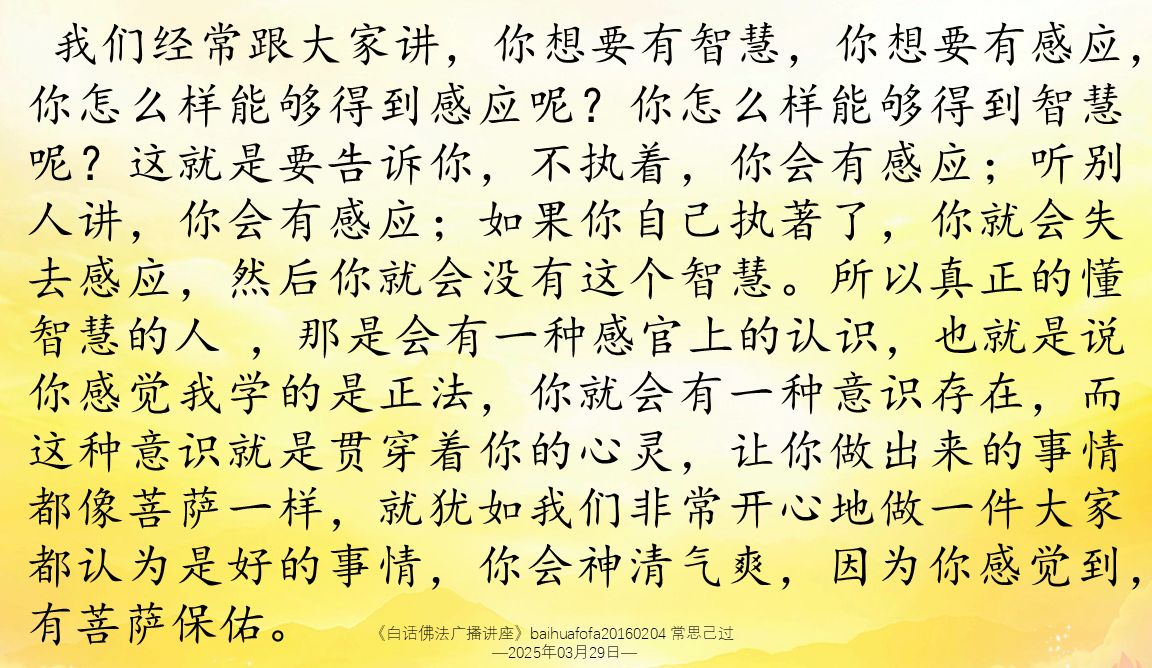 我们经常跟大家讲，你想要有智慧，你想要有感应，
你怎么样能够得到感应呢？你怎么样能够得到智慧
呢？这就是要告诉你，不执着，你会有感应；听别
人讲，你会有感应；如果你自己执著了，你就会失
去感应，然后你就会没有这个智慧。所以真正的懂
智慧的人 ，那是会有一种感官上的认识，也就是说
你感觉我学的是正法，你就会有一种意识存在，而
这种意识就是贯穿着你的心灵，让你做出来的事情
都像菩萨一样，就犹如我们非常开心地做一件大家
都认为是好的事情，你会神清气爽，因为你感觉到，
有菩萨保佑。
《白话佛法广播讲座》baihuafofa20160204 常思己过
—2025年03月29日—